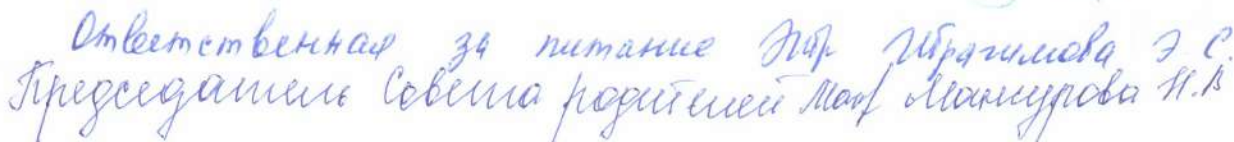 Ответственная за питание Ибрагимова Э.С.
Председатель Совета родителей Мансурова Н.В